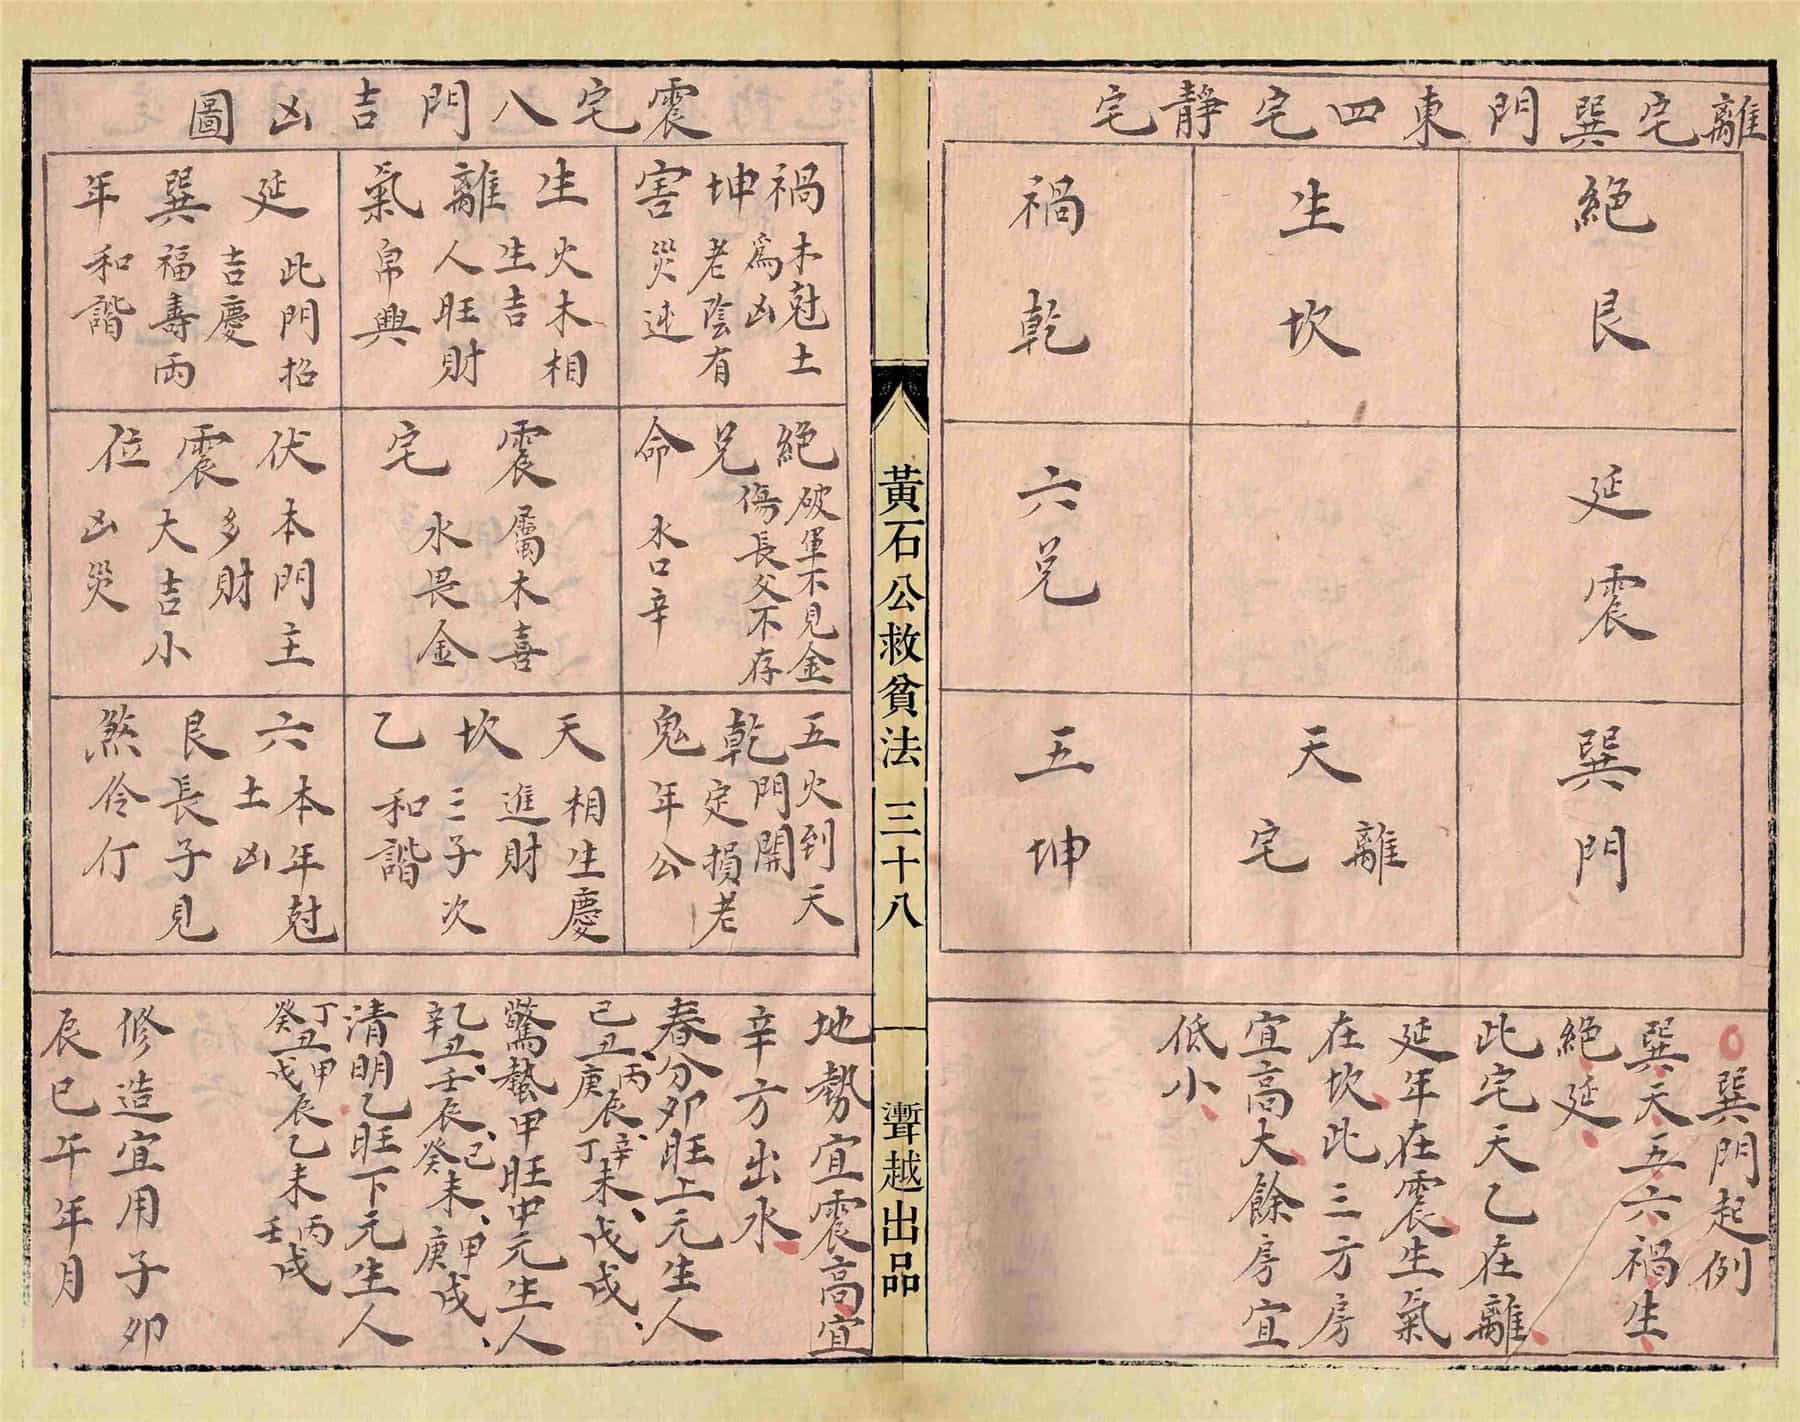 離宅巽門東四宅靜宅
絕艮
生坎
禍乾
延震
六兌
巽門
天離宅
五坤
○巽門起例
巽天五六禍生
絕延
此宅天乙在離
延年在震生氣
在坎此三方房
宜高大餘房宜
低小
黃石公救貧法
三十八
漸越出品
震宅八門吉凶圖
禍坤害
木尅土
為凶
老陰有
災迍
生離氣
火木相
生吉
人旺財
帛興
延巽年
此門招
吉慶
福壽兩
和諧
絕兌命
破軍不見金
傷長父不存
水口辛
震宅
屬木喜
水畏金
伏震位
本門主
多財
大吉小
凶災
五乾鬼
火到天
門開
定損老
年公
天坎乙
相生慶
進財
三子次
和諧
六艮煞
本年尅
土凶
長子見
伶仃
地勢宜震高宜
辛方出水
春分卯旺上元生人
己丑、丙辰、辛未、戊戌、
庚 丁
驚蟄甲旺中元生人
乙丑、壬辰、己未、甲戌、
辛 癸 庚
清明乙旺下元生人
丁丑甲辰乙未丙戌
癸 戊 壬
修造宜用子卯
辰巳午年月